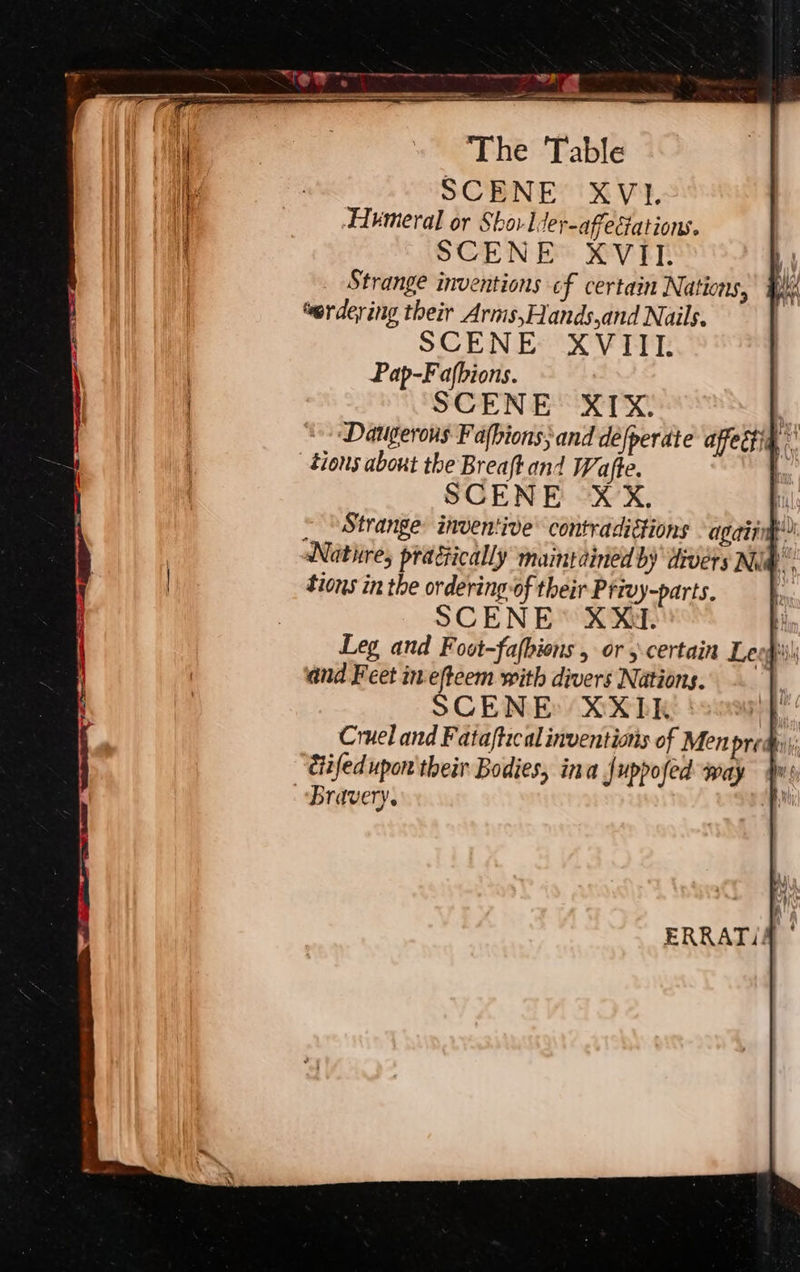 The Table
SCENE XVI.
Humeral or Shoulder-affectations.
SCENE XVII.
Strange inventions of certain Nations,
in ordering their Arms, Hands, and Nails.
SCENE XVIII.
Pap-Faſhions.
SCENE XIX.
Dangerous Faſhions, and deſperate affect
tions about the Breaſt and Waſte.
SCENE XX.
Strange inventive contradictions
Nature, practically maintained by divers
tions in the ordering of their Privy-parts.
SCENE XXI.
Leg and Foot-faſhions, or, certain
and Feet in eſteem with divers Nations.
SCENE XXII.
Cruel and Fataſtical inventions of Men
ctiſed upon their Bodies, in a ſuppoſed way
Bravery.
ERRATA